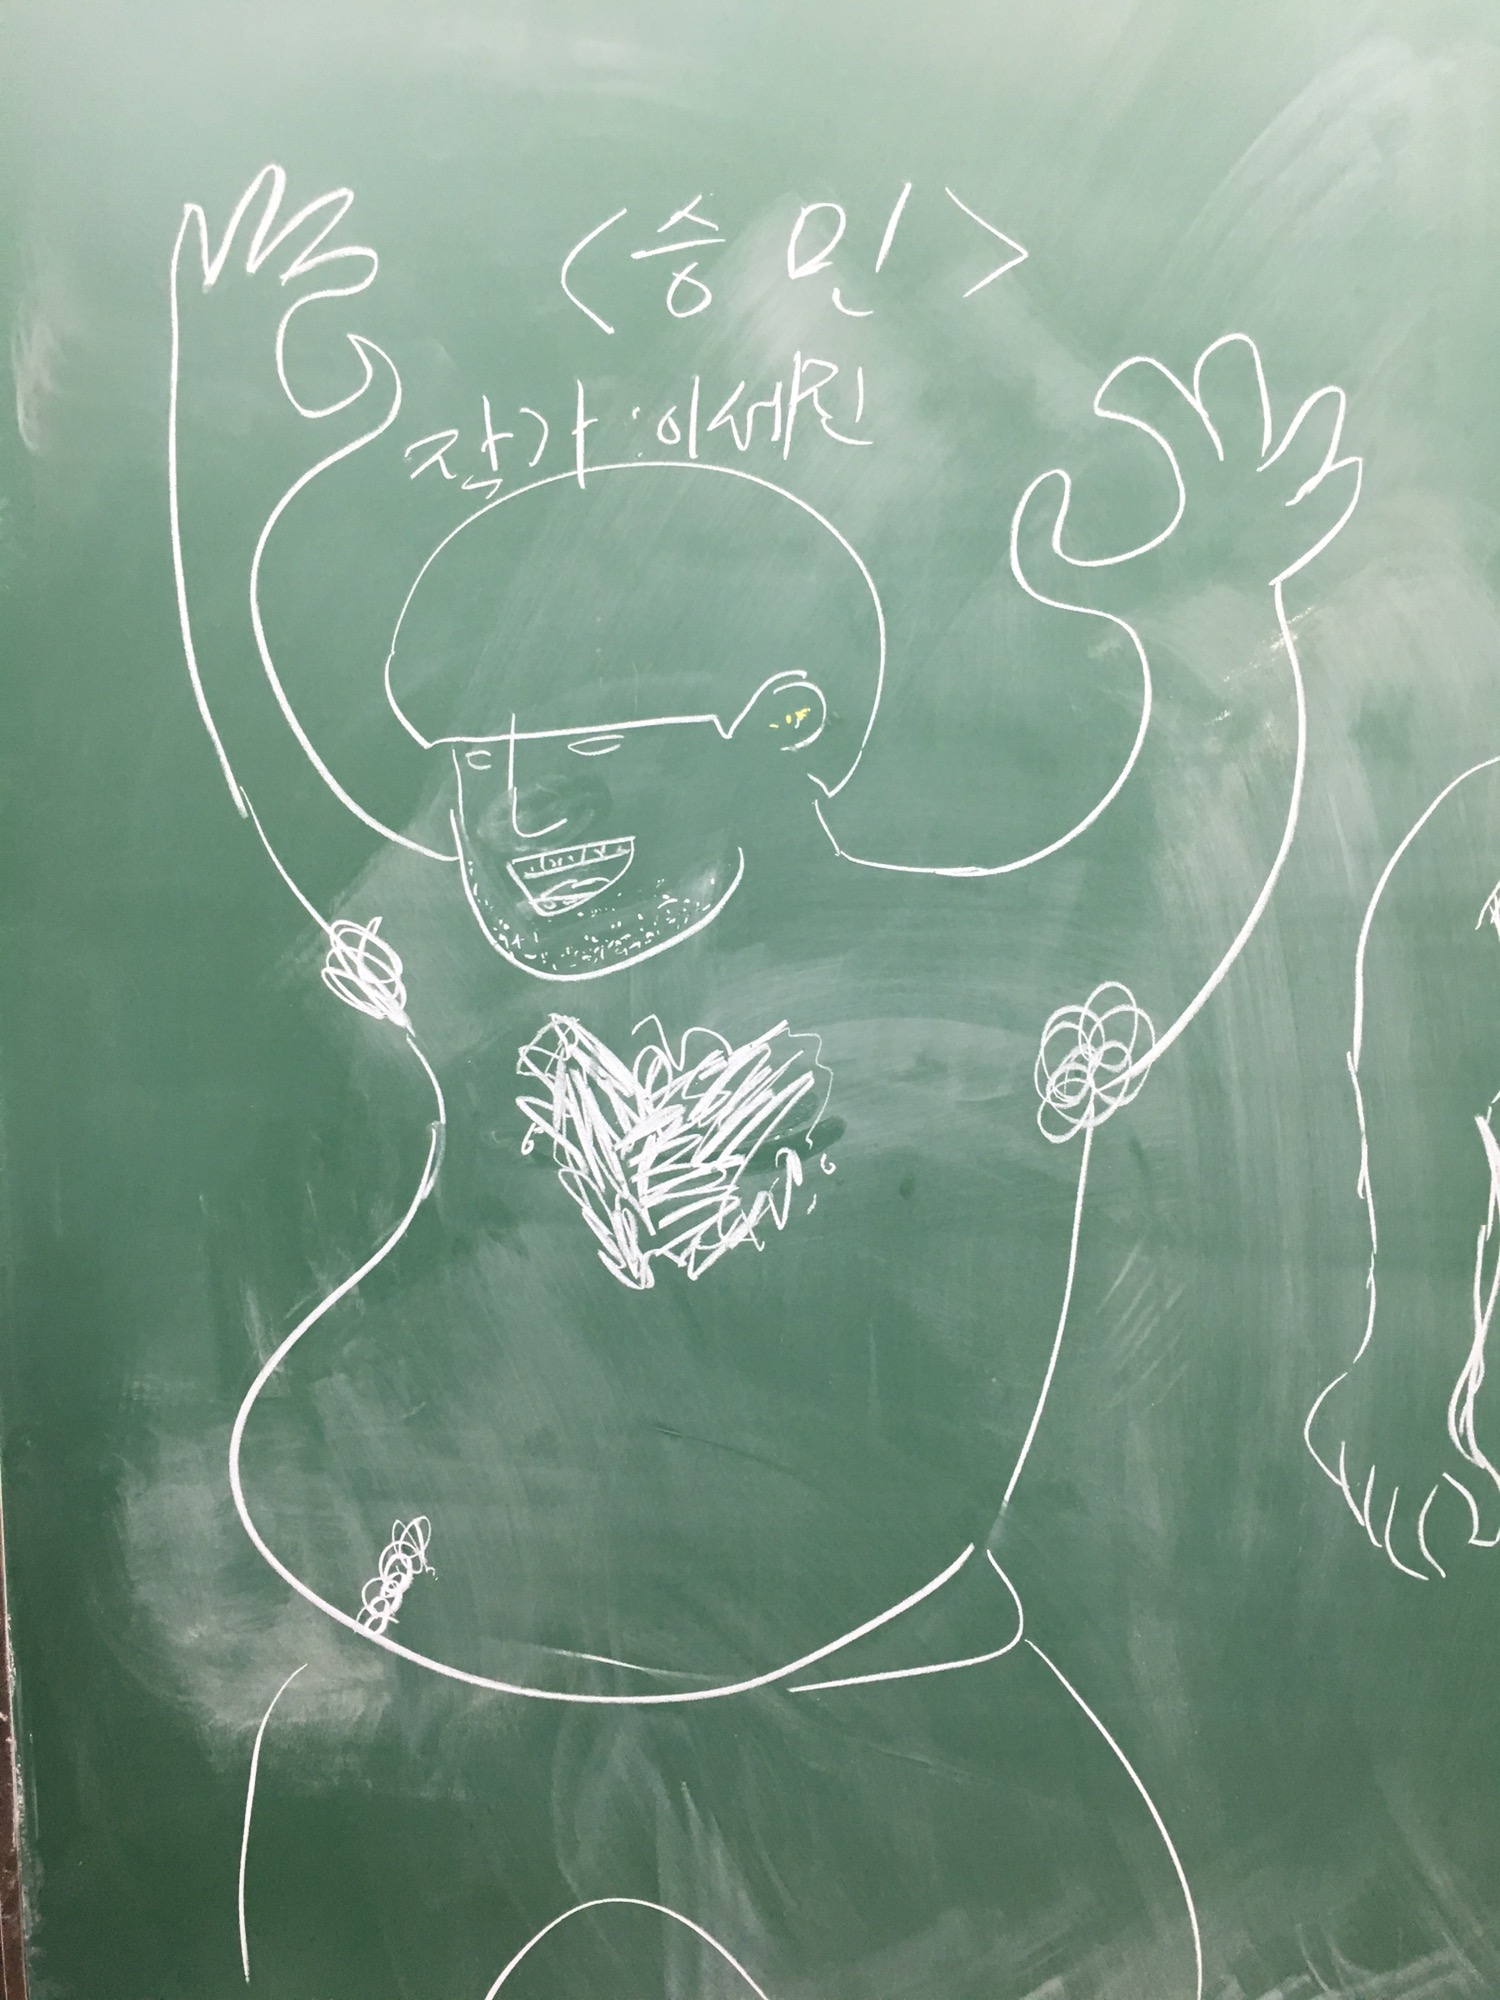 <승민>
작가 : 이세린